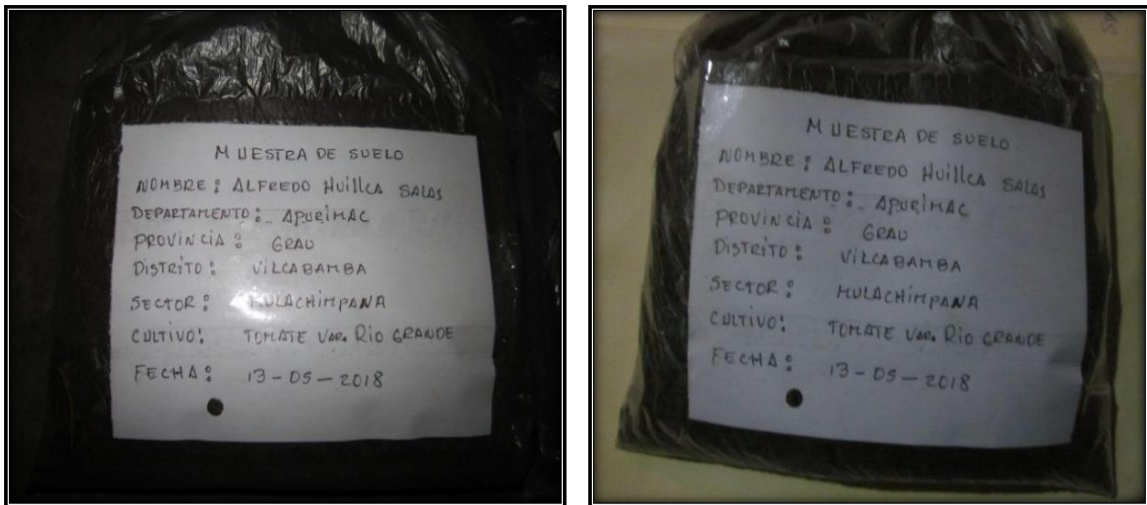 MUESTRA DE SUELO
NOMBRE: ALFREDO HUILLCA SALAS
DEPARTAMENTO: APURIMAC
PROVINCIA: GRAU
DISTRITO: VILCABAMBA
SECTOR: MULACHIMPANA
CULTIVO: TOMATE VAR. RIO GRANDE
FECHA: 13-05-2018
MUESTRA DE SUELO
NOMBRE: ALFREDO HUILLCA SALAS
DEPARTAMENTO: APURIMAC
PROVINCIA: GRAU
DISTRITO: VILCABAMBA
SECTOR: MULACHIMPANA
CULTIVO: TOMATE VAR. RIO GRANDE
FECHA: 13-05-2018